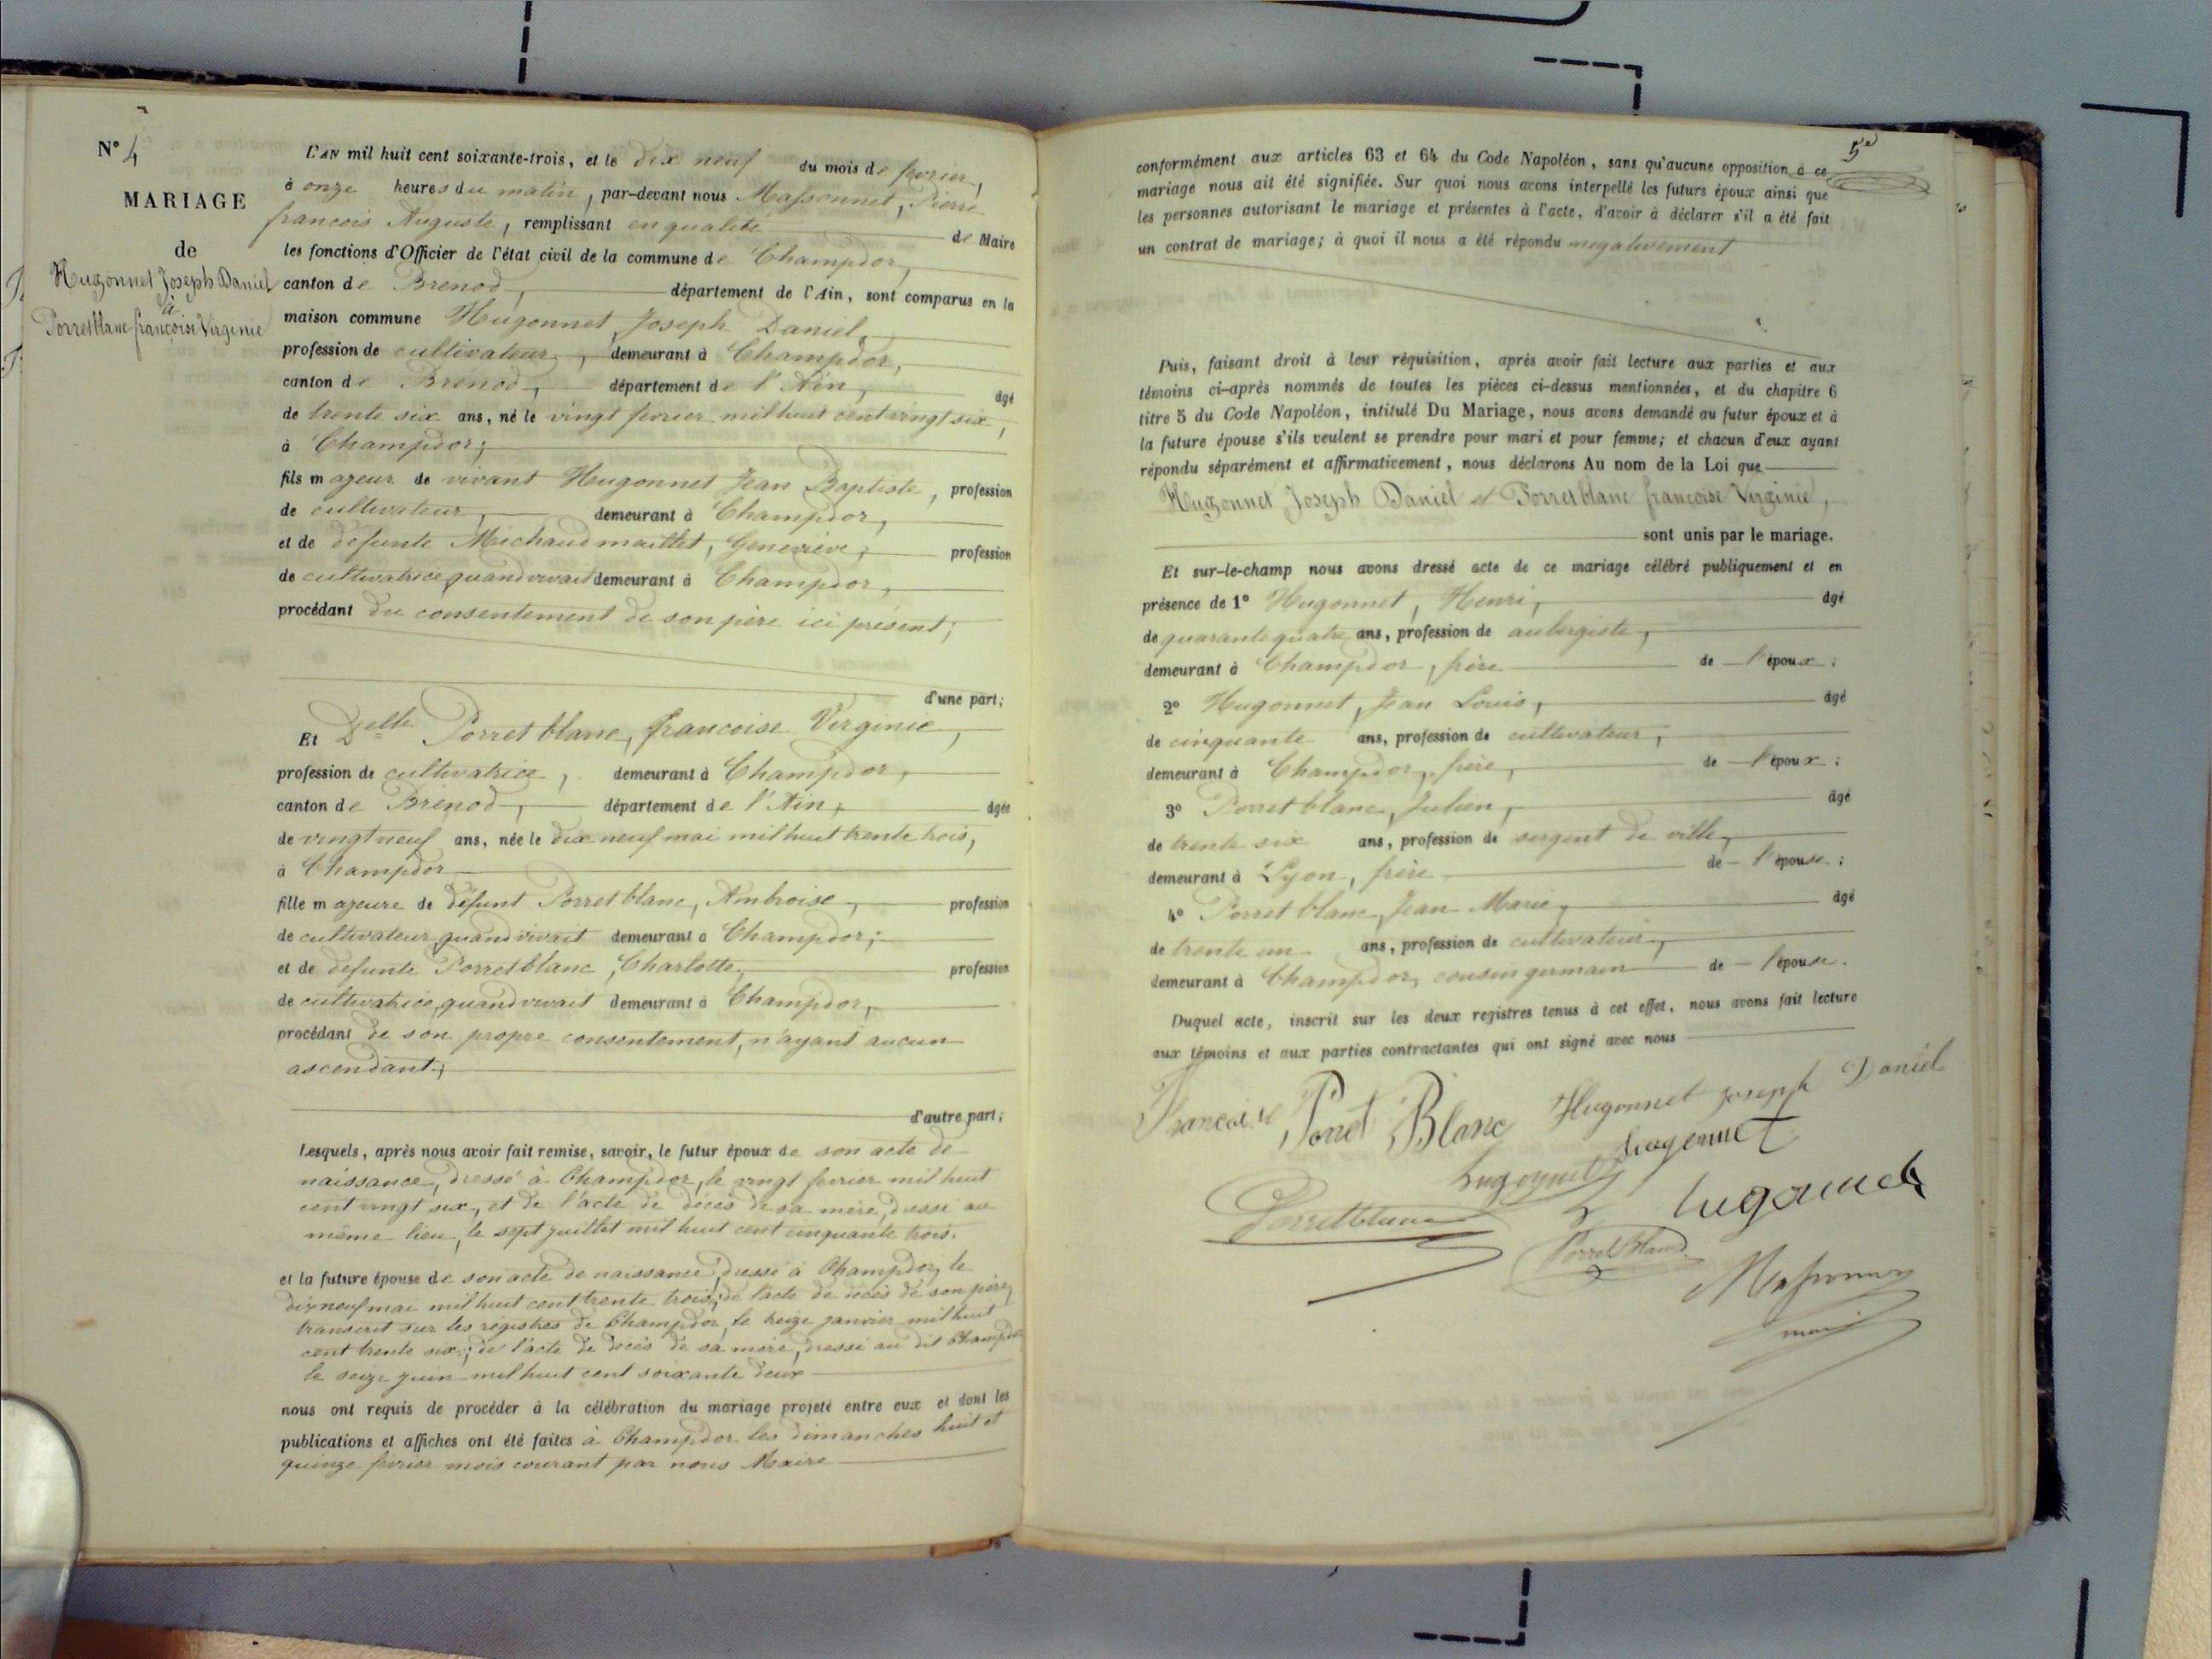 N° 4
MARIAGE
de
Hugonnet Joseph Daniel
à
Porretblanc françoise Virginie
L'AN mil huit cent soixante-trois, et le dix neuf du mois de fevrier,
à onze heures du matin, par-devant nous Massonnet, Pierre
francois Auguste, remplissant en qualité de Maire
les fonctions d'Officier de l'état civil de la commune de Champdor,
canton de Brenod, département de l'Ain, sont comparus en la
maison commune Hugonnet, Joseph Daniel,
profession de cultivateur, demeurant à Champdor,
canton de Brénod, département de l'Ain, âgé
de trente six ans, né le vingt fevrier mil huit cent vingt six,
à Champdor;
fils majeur de vivant Hugonnet Jean Baptiste, profession
de cultivateur, demeurant à Champdor,
et de defunte Michaud maillet, Geneviève, profession
de cultivatrice quand vivait demeurant à Champdor,
procédant du consentement de son père ici présent;
d'une part;
Et Delle Porret blanc, francoise Virginie,
profession de cultivatrice, demeurant à Champdor,
canton de Brénod, département de l'Ain, âgée
de vingt neuf ans, née le dix neuf mai mil huit trente trois,
à Champdor
fille majeure de défunt Porret blanc, Ambroise, profession
de cultivateur quand vivait demeurant à Champdor;
et de defunte Porret blanc, Charlotte, profession
de cultivatrice, quand vivait demeurant à Champdor,
procédant de son propre consentement, n'ayant aucun
ascendant;
d'autre part;
Lesquels, après nous avoir fait remise, savoir, le futur époux de son acte de
naissance, dressé à Champdor, le vingt fevrier mil huit
cent vingt six, et de l'acte de décès de sa mère, dressé au
même lieu, le sept juillet mil huit cent cinquante trois.
et la future épouse de son acte de naissance, dressé à Champdor, le
dix neuf mai mil huit cent trente trois; de l'acte de décès de son père,
transcrit sur les régistres de Champdor, le treize janvier mil huit
cent trente six; de l'acte de décès de sa mère, dressé au dit Champdor
le seize juin mil huit cent soixante deux
nous ont requis de procéder à la célébration du mariage projeté entre eux et dont les
publications et affiches ont été faites à Champdor les dimanches huit et
quinze fevrier mois courant par nous Maire
5e
conformément aux articles 63 et 64 du Code Napoléon, sans qu'aucune opposition à ce
mariage nous ait été signifiée. Sur quoi nous avons interpellé les futurs époux ainsi que
les personnes autorisant le mariage et présentes à l'acte, d'avoir à déclarer s'il a été fait
un contrat de mariage; à quoi il nous a été répondu negativement
Puis, faisant droit à leur réquisition, après avoir fait lecture aux parties et aux
témoins ci-après nommés de toutes les pièces ci-dessus mentionnées, et du chapitre 6
titre 5 du Code Napoléon, intitulé Du Mariage, nous avons demandé au futur époux et à
la future épouse s'ils veulent se prendre pour mari et pour femme; et chacun d'eux ayant
répondu séparément et affirmativement, nous déclarons Au nom de la Loi que
Hugonnet Joseph Daniel et Porretblanc françoise Virginie,
sont unis par le mariage.
Et sur-le-champ nous avons dressé acte de ce mariage célébré publiquement et en
présence de 1° Hugonnet, Henri, âgé
de quarante quatre ans, profession de aubergiste,
demeurant à Champdor, frère de l'époux;
2° Hugonnet, Jean Louis, âgé
de cinquante ans, profession de cultivateur,
demeurant à Champdor, frère, de l'époux;
3° Porret blanc, Julien, âgé
de trente six ans, profession de sergent de ville,
demeurant à Lyon, frère de l'épouse;
4° Porret blanc, Jean Marie, âgé
de trente un ans, profession de cultivateur,
demeurant à Champdor, cousin germain de l'épouse.
Duquel acte, inscrit sur les deux registres tenus à cet effet, nous avons fait lecture
aux témoins et aux parties contractantes qui ont signé avec nous
Francoise Porret Blanc Hugonnet joseph Daniel
hugonnet
hugonnet
hugonnet
Porretblanc
Porret Blanc
Massonnet
maire